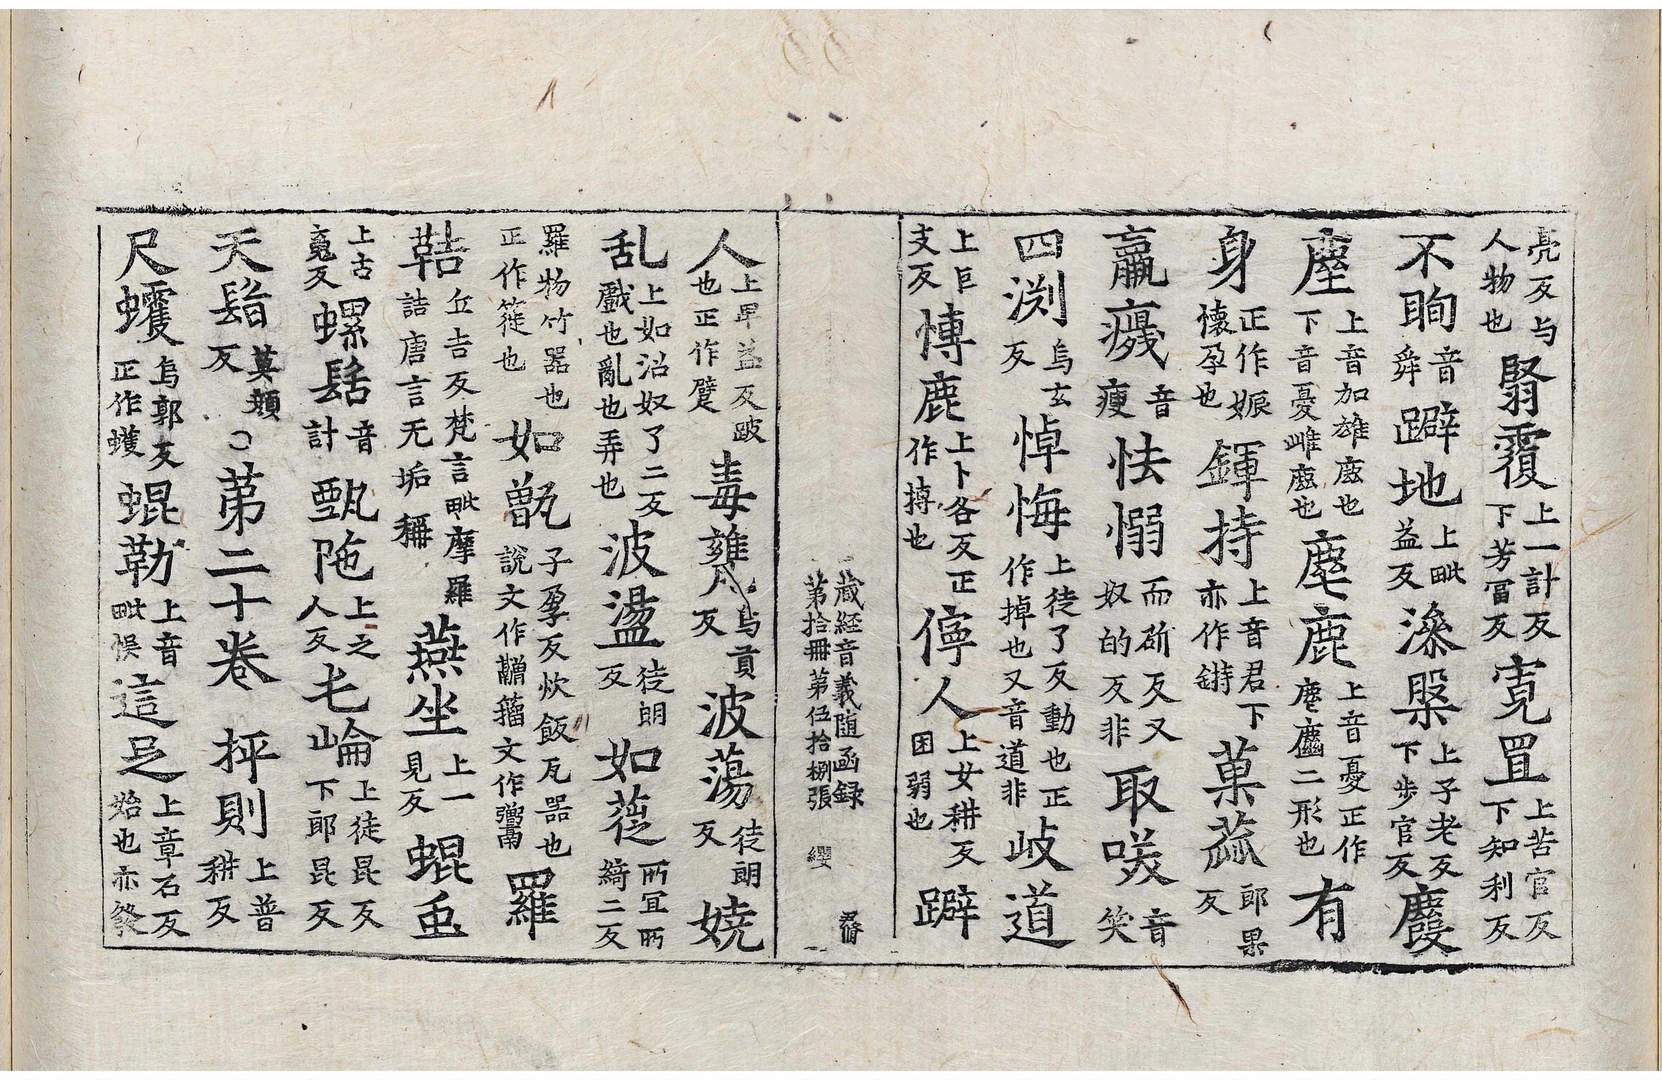 亮反与人物也翳覆上一計反下芳富反寬罝上苦官反下知利反
不眴音舜躃地上毗益反澡槃上子老反下步官反麚
塵上音加雄鹿也下音憂雌鹿也麀鹿上音憂正作麀二形也有
身正作娠懷孕也鍕持上音君下亦作𨫼菓蓏郎果反
羸癈音痩怯愵而斫反又奴的反非取唉音笑
四渕烏玄反悼悔上徒了反動也正作掉也又音道非岐道
上巨支反愽鹿上卜各反正作摶也儜人上女耕反困弱也躃
藏經音義隨函録第拾冊第伍拾捌張 纓
人上早益反跛也正作躄毒蕹与貢反波蕩徒朗反嬈
乱上如沼奴了二反戲也亂也弄也波盪徒朗反如蓰所宜所綺二反
羅物竹器也正作簁也如甑子孕反炊飯瓦器也說文作䰝籀文作䰝羅
鞊丘吉反梵言毗摩羅詰唐言无垢稱燕坐上一見反蜫䖝
上古䰟反螺髻音計甄陁上之人反乇崘上徒昆反下郎昆反
天䯻莫頰反○苐二十卷抨則上普耕反
尺蠖烏郭反正作蠖蜫勒上音毗悮這足上章石反始也亦